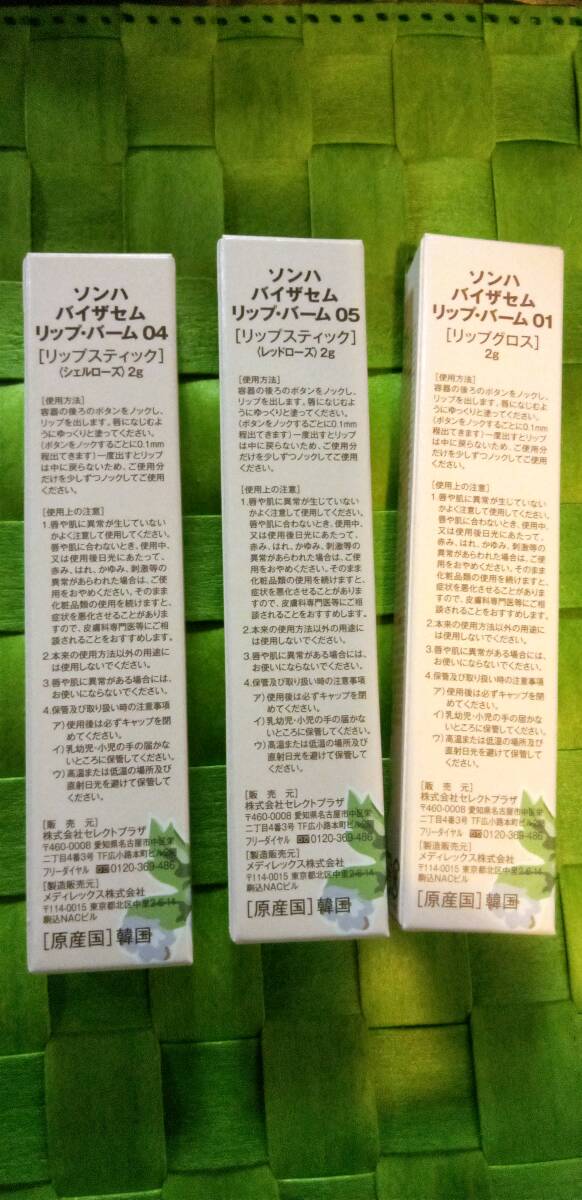 ソンハ
バイザセム
リップ・バーム 04
[リップスティック]
〈シェルローズ〉 2g
[使用方法]
容器の後ろのボタンをノックし、
リップを出します。唇になじむよ
うにゆっくりと塗ってください。
(ボタンをノックするごとに0.1mm
程出てきます)一度出すとリップ
は中に戻らないため、ご使用分
だけを少しずつノックしてご使用
ください。
[使用上の注意]
1.唇や肌に異常が生じていない
かよく注意して使用してください。
唇や肌に合わないとき、使用中、
又は使用後日光にあたって、
赤み、はれ、かゆみ、刺激等の
異常があらわれた場合は、ご使
用をおやめください。そのまま
化粧品類の使用を続けますと、
症状を悪化させることがありま
すので、皮膚科専門医等にご相
談されることをおすすめします。
2.本来の使用方法以外の用途に
は使用しないでください。
3.唇や肌に異常がある場合には、
お使いにならないでください。
4.保管及び取り扱い時の注意事項
ア)使用後は必ずキャップを閉
めてください。
イ)乳幼児・小児の手の届かな
いところに保管してください。
ウ)高温または低温の場所及び
直射日光を避けて保管して
ください。
[販 売 元]
株式会社セレクトプラザ
〒460-0008 愛知県名古屋市中区栄
二丁目4番3号 TF広小路本町ビル
フリーダイヤル 0120-369-486
[製造販売元]
メディレックス株式会社
〒114-0015 東京都北区中里2-6-14
駒込NACビル
[原産国] 韓国
ソンハ
バイザセム
リップ・バーム 05
[リップスティック]
〈レッドローズ〉 2g
[使用方法]
容器の後ろのボタンをノックし、
リップを出します。唇になじむよ
うにゆっくりと塗ってください。
(ボタンをノックするごとに0.1mm
程出てきます)一度出すとリップ
は中に戻らないため、ご使用分
だけを少しずつノックしてご使用
ください。
[使用上の注意]
1.唇や肌に異常が生じていない
かよく注意して使用してください。
唇や肌に合わないとき、使用中、
又は使用後日光にあたって、
赤み、はれ、かゆみ、刺激等の
異常があらわれた場合は、ご使
用をおやめください。そのまま
化粧品類の使用を続けますと、
症状を悪化させることがありま
すので、皮膚科専門医等にご相
談されることをおすすめします。
2.本来の使用方法以外の用途に
は使用しないでください。
3.唇や肌に異常がある場合には、
お使いにならないでください。
4.保管及び取り扱い時の注意事項
ア)使用後は必ずキャップを閉
めてください。
イ)乳幼児・小児の手の届かな
いところに保管してください。
ウ)高温または低温の場所及び
直射日光を避けて保管して
ください。
[販 売 元]
株式会社セレクトプラザ
〒460-0008 愛知県名古屋市中区栄
二丁目4番3号 TF広小路本町ビル
フリーダイヤル 0120-369-486
[製造販売元]
メディレックス株式会社
〒114-0015 東京都北区中里2-6-14
駒込NACビル
[原産国] 韓国
ソンハ
バイザセム
リップ・バーム 01
[リップグロス]
2g
[使用方法]
容器の後ろのボタンをノックし、
リップを出します。唇になじむよ
うにゆっくりと塗ってください。
(ボタンをノックするごとに0.1mm
程出てきます)一度出すとリップ
は中に戻らないため、ご使用分
だけを少しずつノックしてご使用
ください。
[使用上の注意]
1.唇や肌に異常が生じていない
かよく注意して使用してください。
唇や肌に合わないとき、使用中、
又は使用後日光にあたって、
赤み、はれ、かゆみ、刺激等の
異常があらわれた場合は、ご使
用をおやめください。そのまま
化粧品類の使用を続けますと、
症状を悪化させることがありま
すので、皮膚科専門医等にご相
談されることをおすすめします。
2.本来の使用方法以外の用途に
は使用しないでください。
3.唇や肌に異常がある場合には、
お使いにならないでください。
4.保管及び取り扱い時の注意事項
ア)使用後は必ずキャップを閉
めてください。
イ)乳幼児・小児の手の届かな
いところに保管してください。
ウ)高温または低温の場所及び
直射日光を避けて保管して
ください。
[販 売 元]
株式会社セレクトプラザ
〒460-0008 愛知県名古屋市中区栄
二丁目4番3号 TF広小路本町ビル
フリーダイヤル 0120-369-486
[製造販売元]
メディレックス株式会社
〒114-0015 東京都北区中里2-6-14
駒込NACビル
[原産国] 韓国